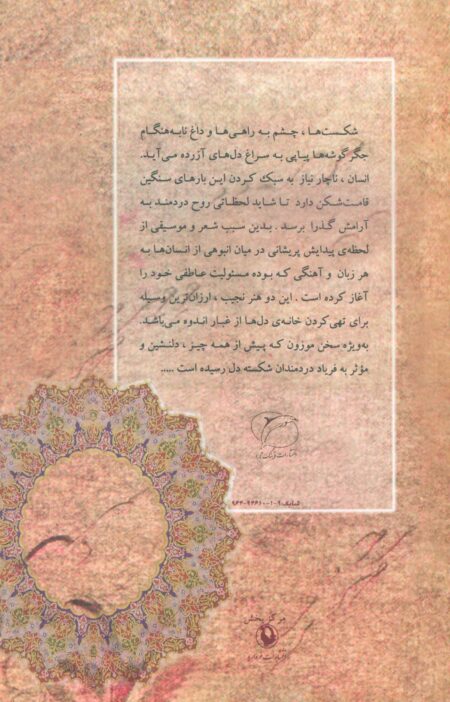 شکست‌ها ، چشم به راهی‌ها و داغ نابه‌هنگام
جگرگوشه‌ها پیاپی به سراغ دل‌های آزرده می‌آید.
انسان ، ناچار نیاز به سبک کردن این بارهای سنگین
قامت‌شکن دارد تا شاید لحظاتی روح دردمند به
آرامش گذرا برسد . بدین سبب شعر و موسیقی از
لحظه‌ی پیدایش پریشانی در میان انبوهی از انسان‌ها به
هر زبان و آهنگی که بوده مسئولیت عاطفی خود را
آغاز کرده است . این دو هنر نجیب ، ارزان‌ترین وسیله
برای تهی کردن خانه‌ی دل‌ها از غبار اندوه می‌باشد.
به‌ویژه سخن موزون که پیش از همه چیز ، دلنشین و
مؤثر به فریاد دردمندان شکسته دل رسیده است .....
شابک:
مرکز پخش